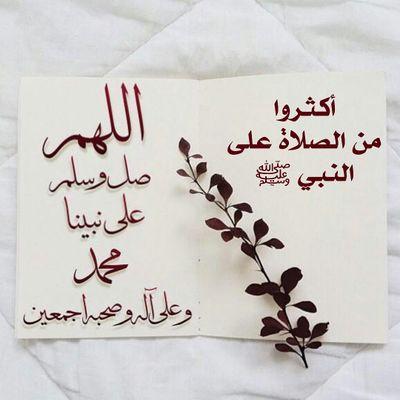 أكثروا
من الصلاة على
النبي ﷺ
اللهم
صل وسلم
على نبينا
محمد
وعلى آله وصحبه اجمعين